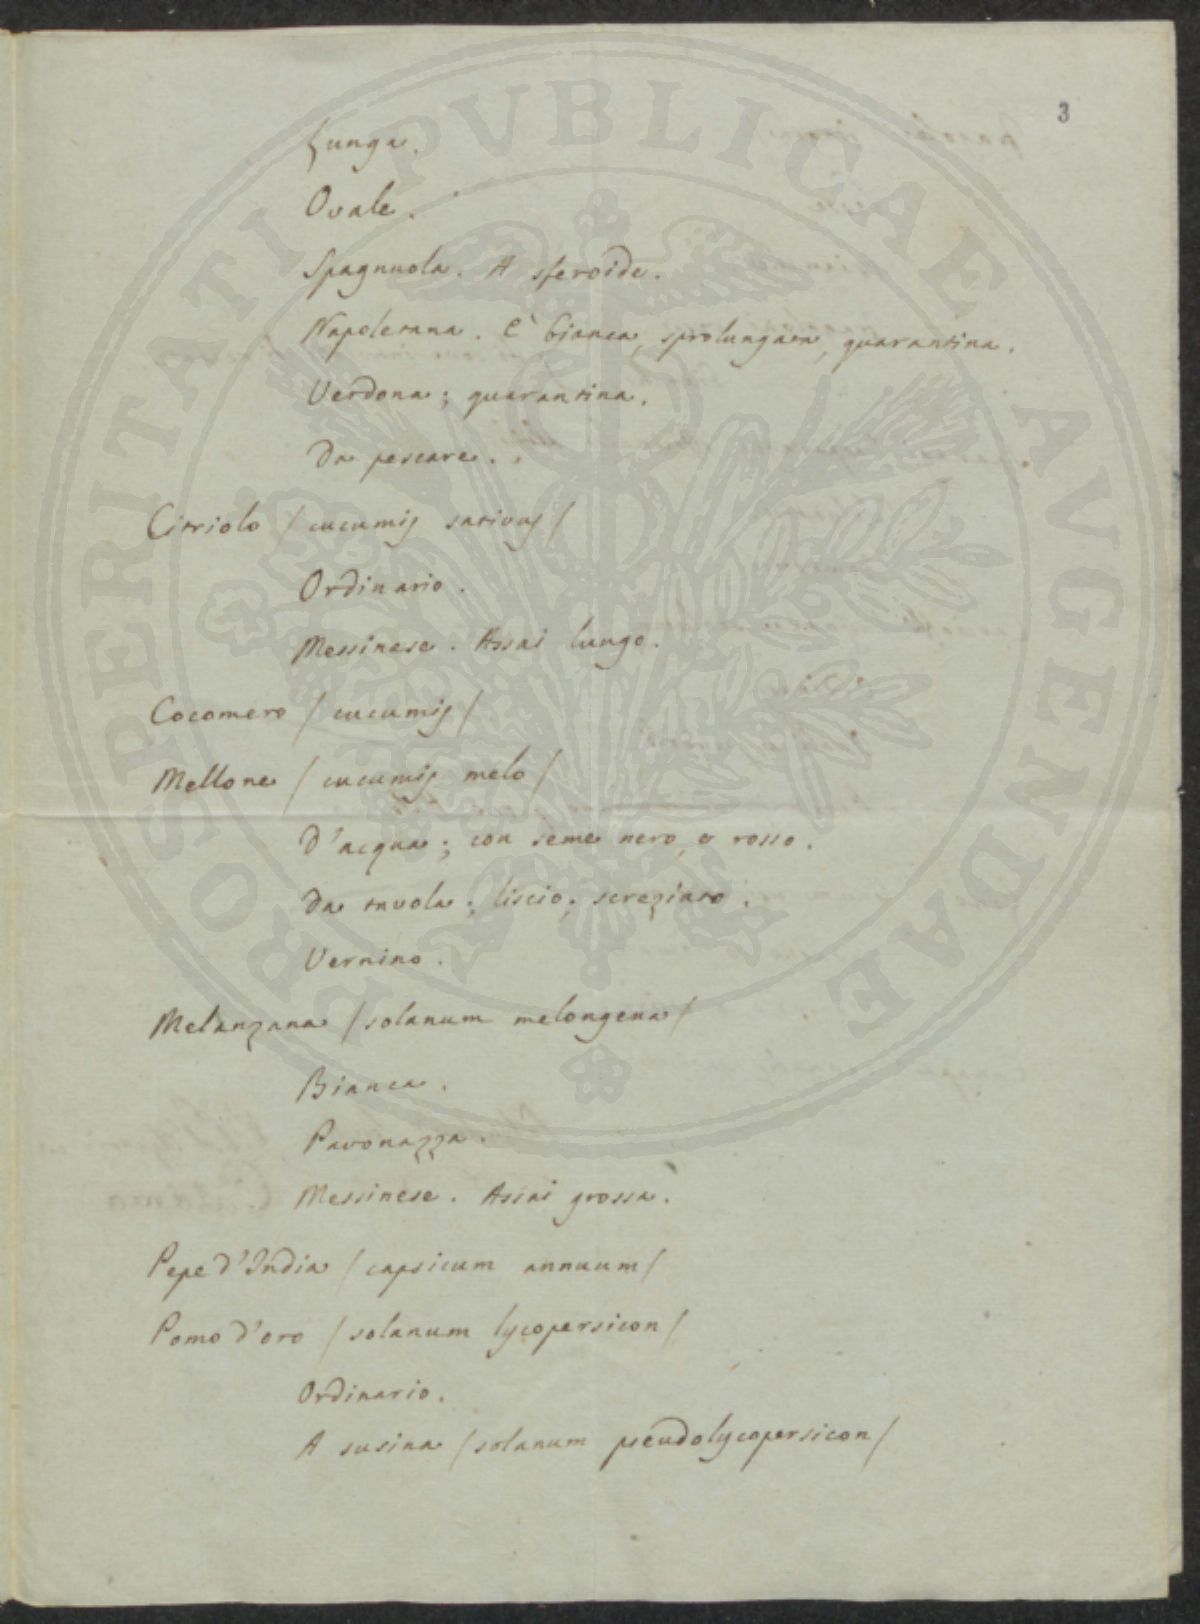 3
Lunga.
Ovale.
Spagnuola. A sferoide.
Napoletana. È bianca, sprolungata, quarantina.
Verdona; quarantina.
Da pescare.
Citriolo / cucumis sativus /
Ordinario.
Messinese. Assai lungo.
Cocomero / cucumis /
Mellone / cucumis melo /
D'acqua; con seme nero, o rosso.
Da tavola; liscio; screziato.
Vernino.
Melanzana / solanum melongena /
Bianca.
Pavonazza.
Messinese. Assai grossa.
Pepe d'India / capsicum annuum /
Pomo d'oro / solanum lycopersicon /
Ordinario.
A susina / solanum pseudolycopersicon /
PROSPERITATI PVBLICAE AVGENDAE